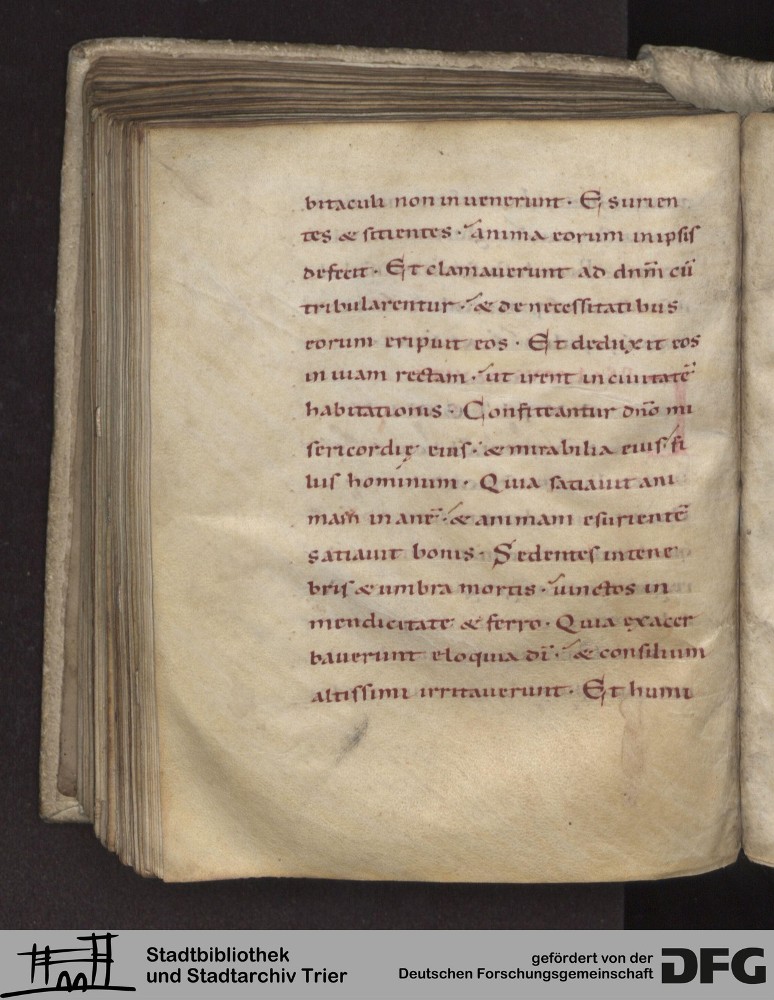 bitaculi non inuenerunt · Esurien
tes & sitientes · anima eorum in ipsis
defecit · Et clamauerunt ad dnm̄ cū
tribularentur · & de necessitatibus
eorum eripuit eos · Et deduxit eos
in uiam rectam · ut irent in ciuitatē
habitationis · Confiteantur dnō mi
sericordię eius · & mirabilia eius fi
liis hominum · Quia satiauit ani
mam inanē · & animam esurientē
satiauit bonis · Sedentes in tene
bris & umbra mortis · uinctos in
mendicitate & ferro · Quia exacer
bauerunt eloquia dī · & consilium
altissimi irritauerunt · Et humi
Stadtbibliothek
und Stadtarchiv Trier
gefördert von der
Deutschen Forschungsgemeinschaft
DFG